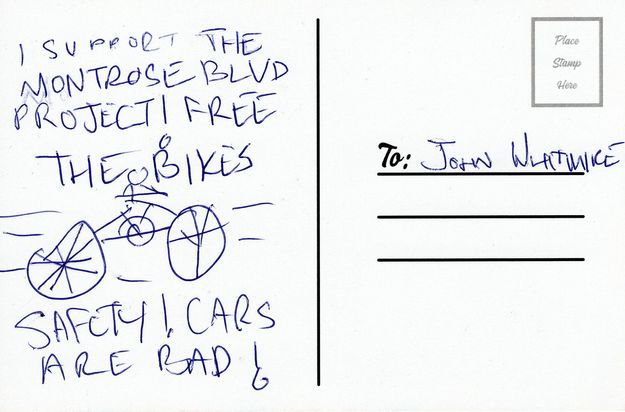 I SUPPORT THE
MONTROSE BLVD
PROJECT! FREE
THE BIKES
SAFETY! CARS
ARE BAD!
Place
Stamp
Here
To: JOHN WHITMIRE